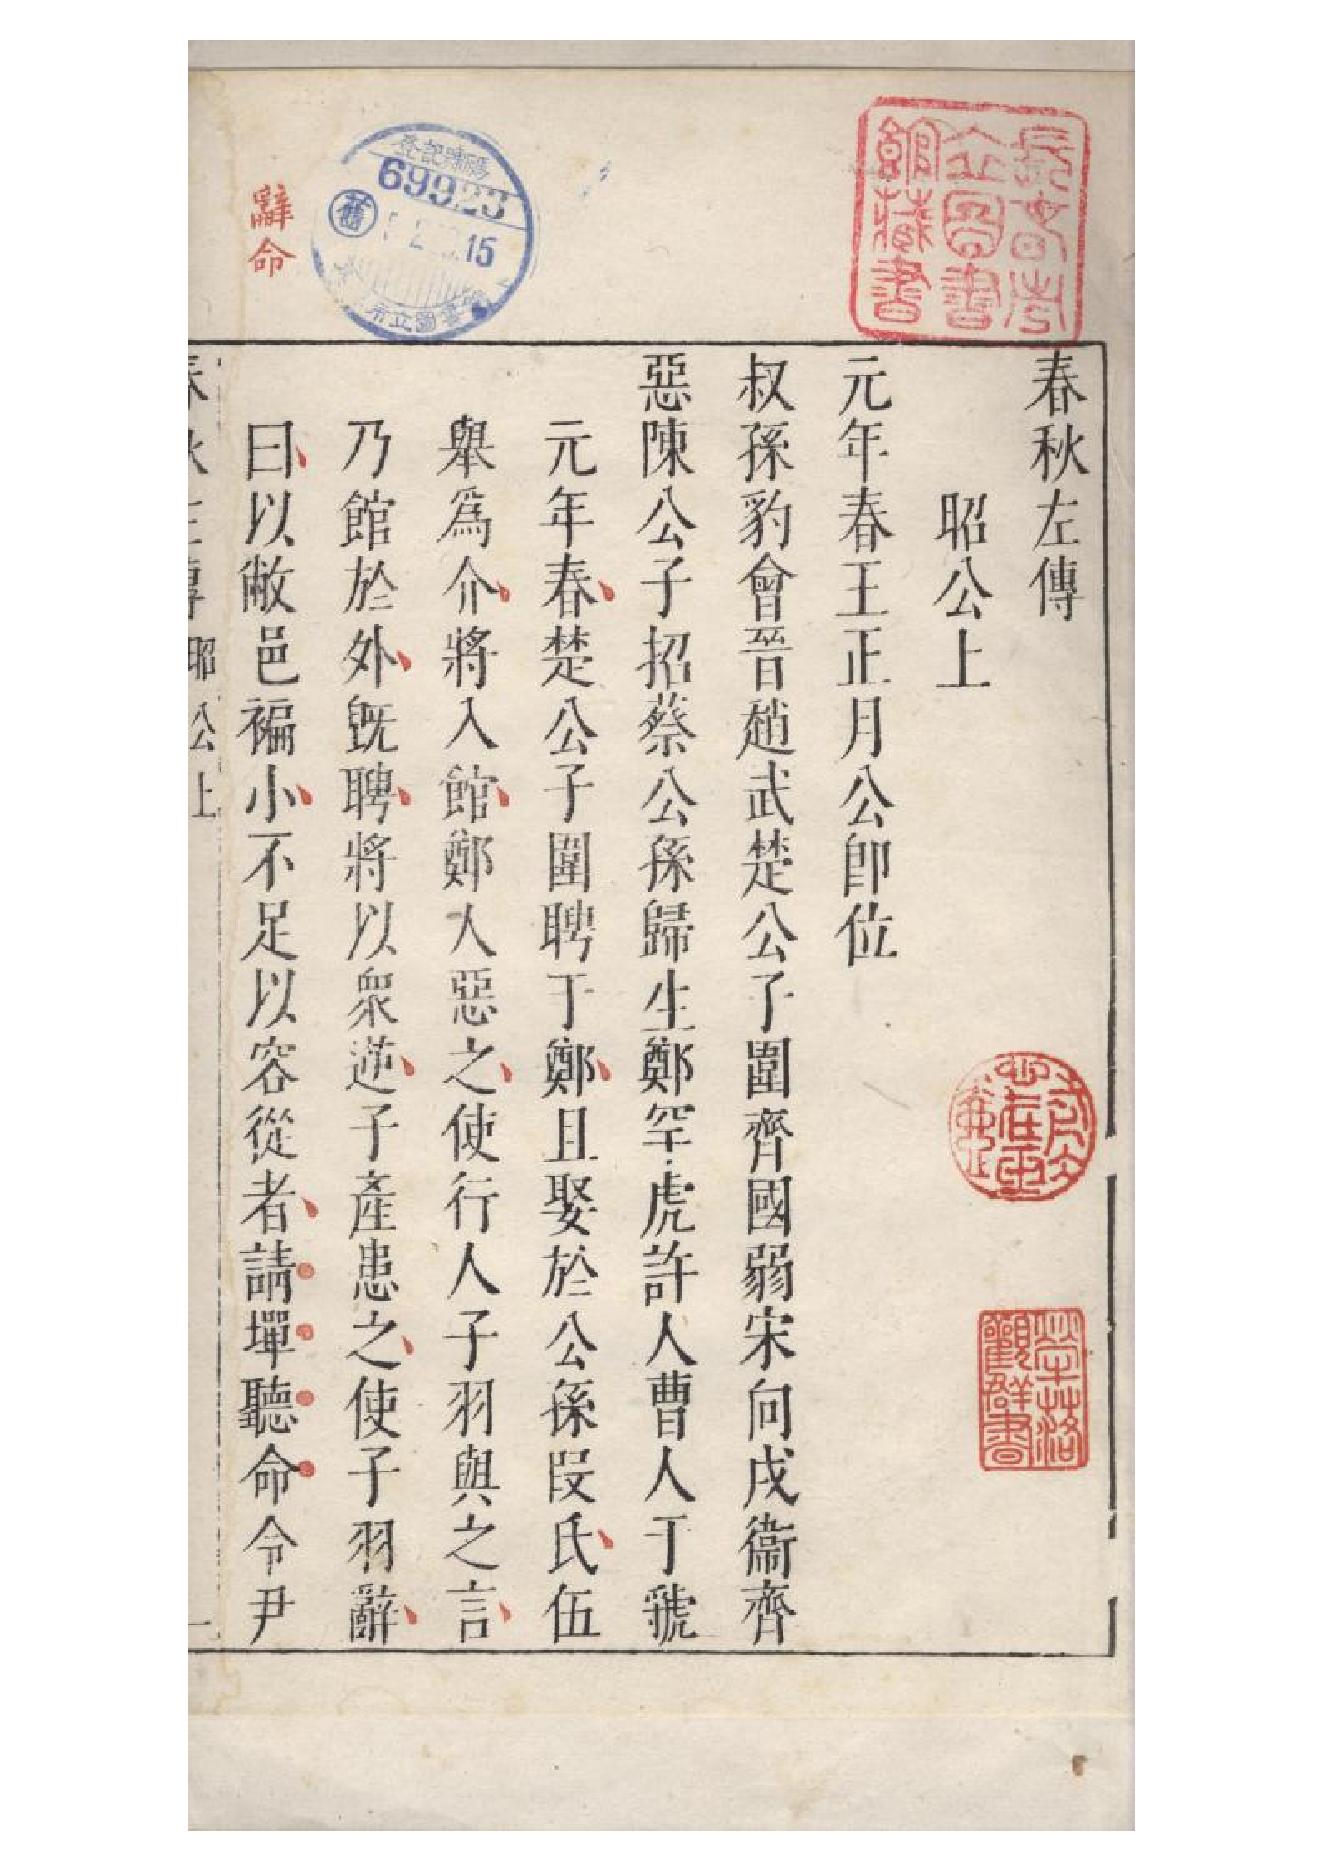 春秋左傳
昭公上
元年春王正月公即位
叔孫豹會晉趙武楚公子圍齊國弱宋向戌衞齊
惡陳公子招蔡公孫歸生鄭罕虎許人曹人于虢
元年春楚公子圍聘于鄭且娶於公孫段氏伍
舉爲介將入館鄭人惡之使行人子羽與之言
乃館於外旣聘將以衆逆子產患之使子羽辭
曰以敝邑褊小不足以容從者請墠聽命令尹
春秋左傳 昭公上 一
辭命
登記號碼
69923
舊
15
市立圖書館
長春市立圖書館藏書
犖落觀群書